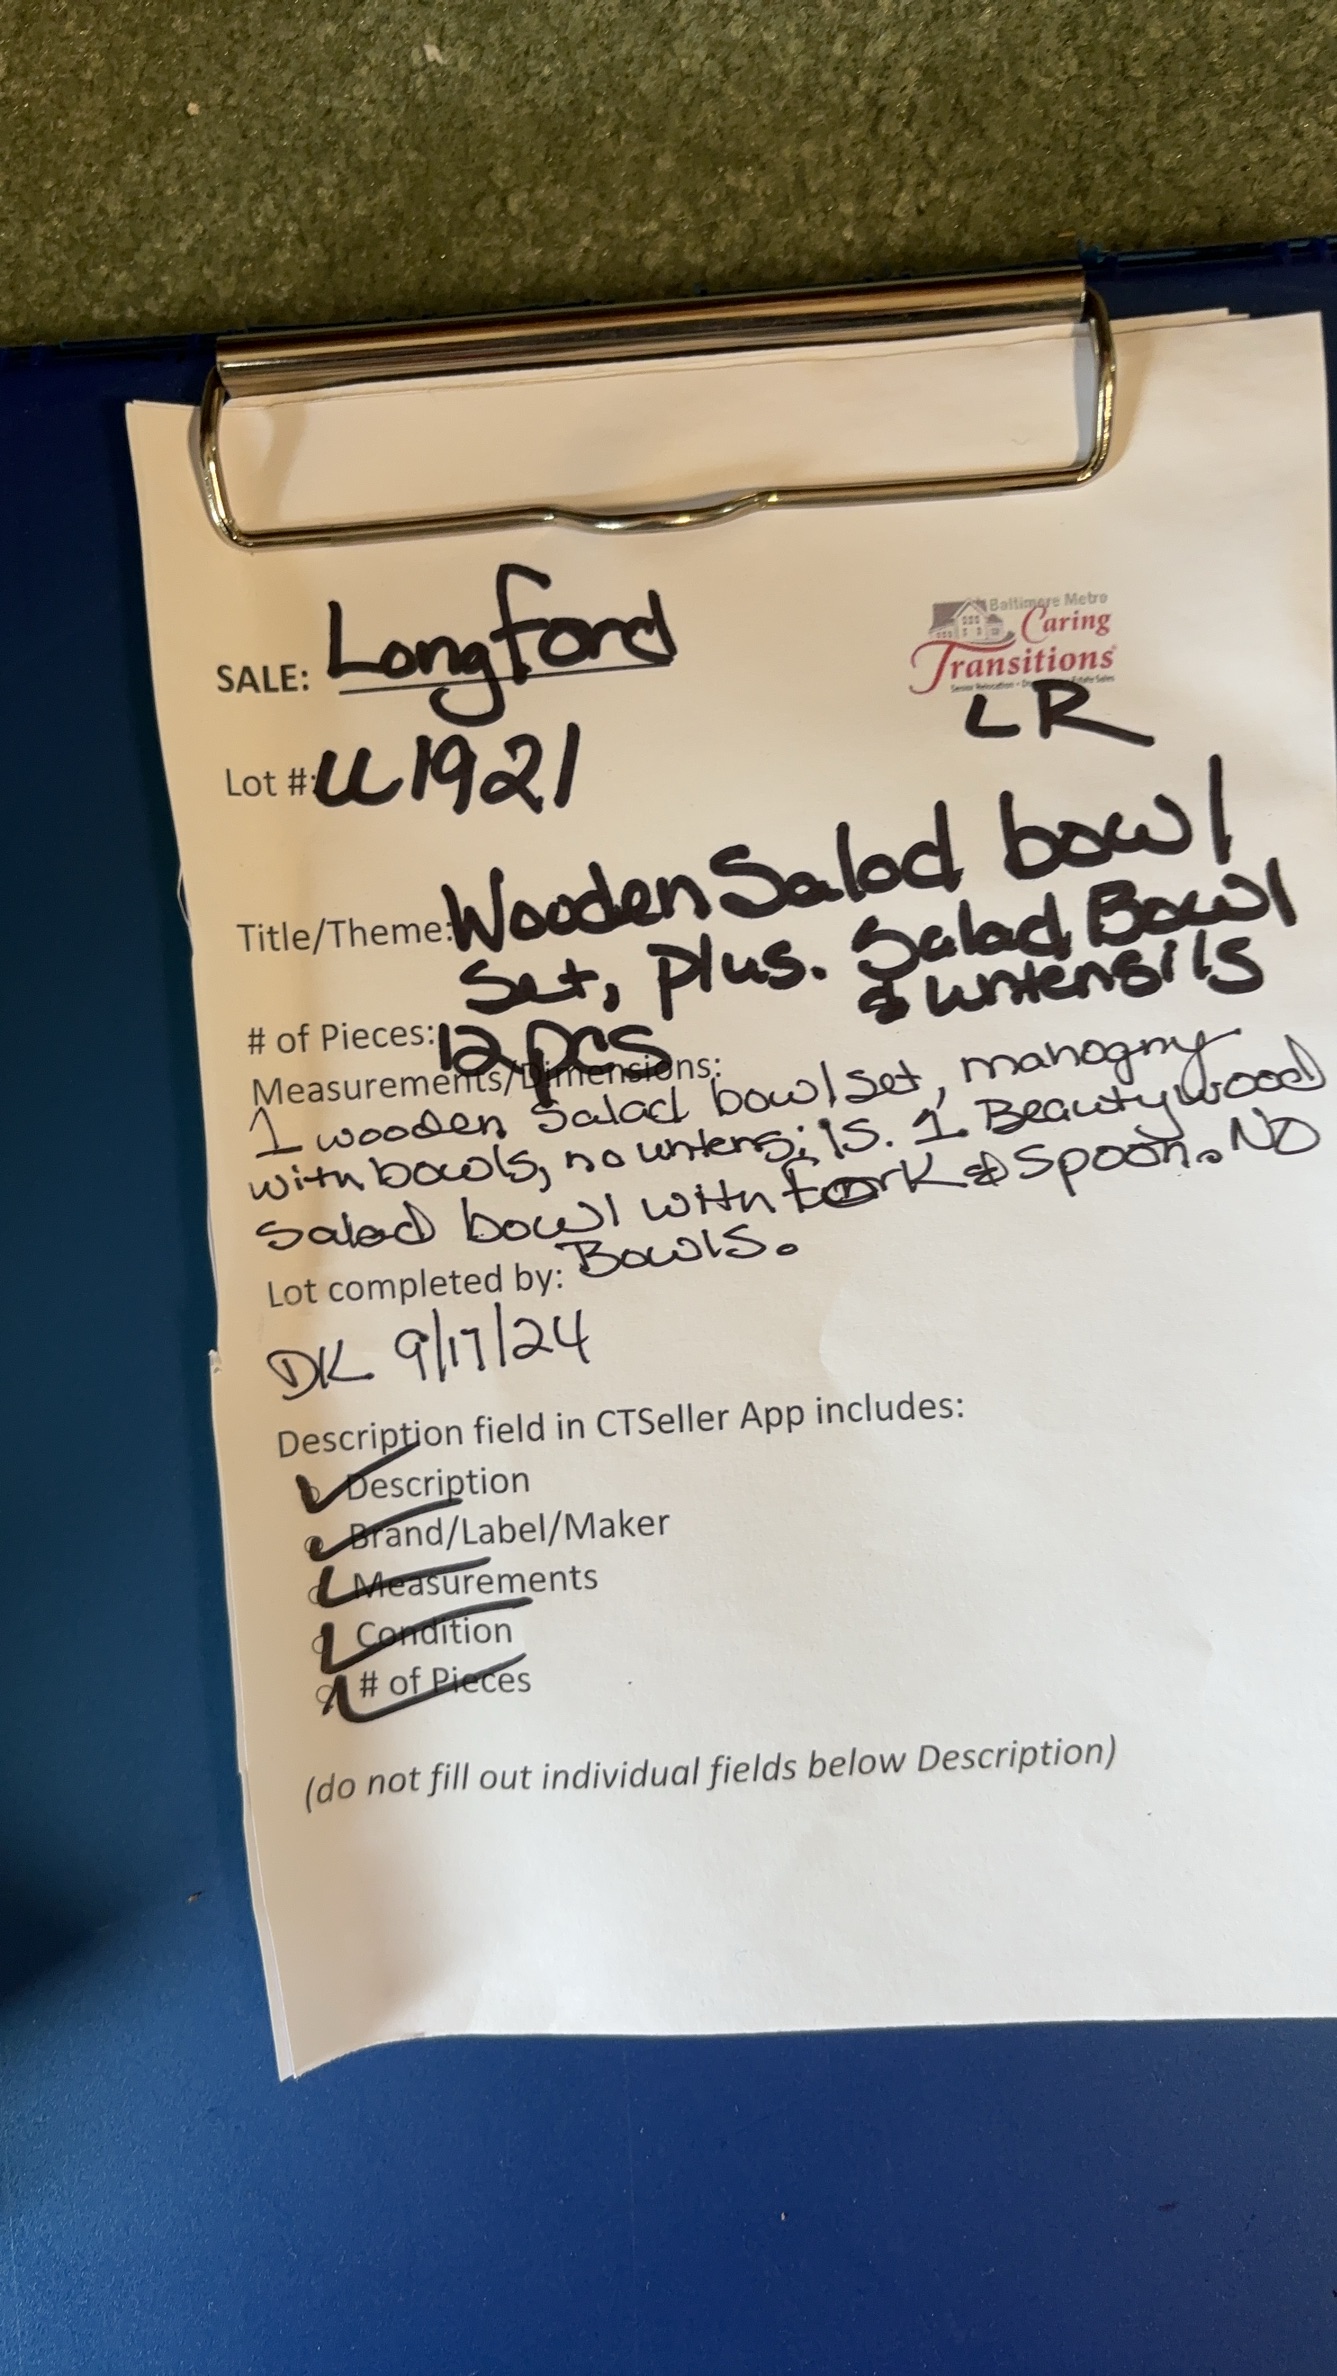 SALE: Longford
Baltimore Metro
Caring
Transitions
LR
Lot #: LL1921
Title/Theme: Wooden Salad bowl
Set, plus. Salad Bowl
& Untensils
# of Pieces: 12 pcs
Measurements/Dimensions:
1 wooden Salad bowl set, mahogny
with bowls, no untensils. 1 Beautywood
Salad bowl with fork & Spoon. No
Bowls.
Lot completed by:
DK 9/17/24
Description field in CTSeller App includes:
Description
Brand/Label/Maker
Measurements
Condition
# of Pieces
(do not fill out individual fields below Description)